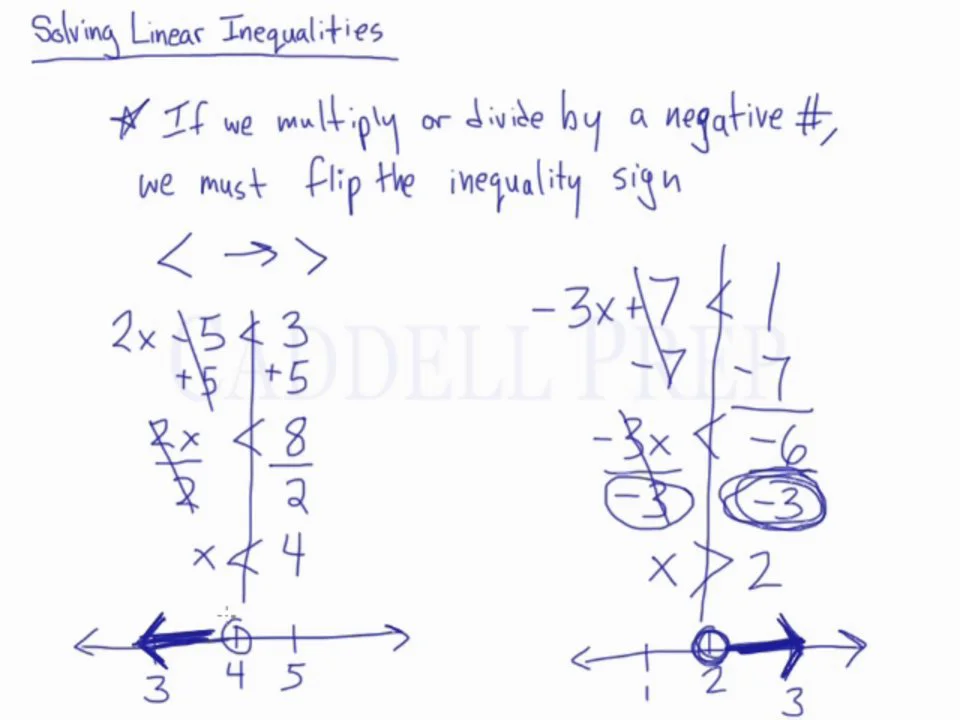 Solving Linear Inequalities
☆ If we multiply or divide by a negative #,
we must flip the inequality sign
< → >
2x - 5 < 3
+5 +5
2x < 8
2 2
x < 4
3 4 5
-3x + 7 < 1
-7 -7
-3x < -6
-3 -3
x > 2
1 2 3
CADDELL PREP